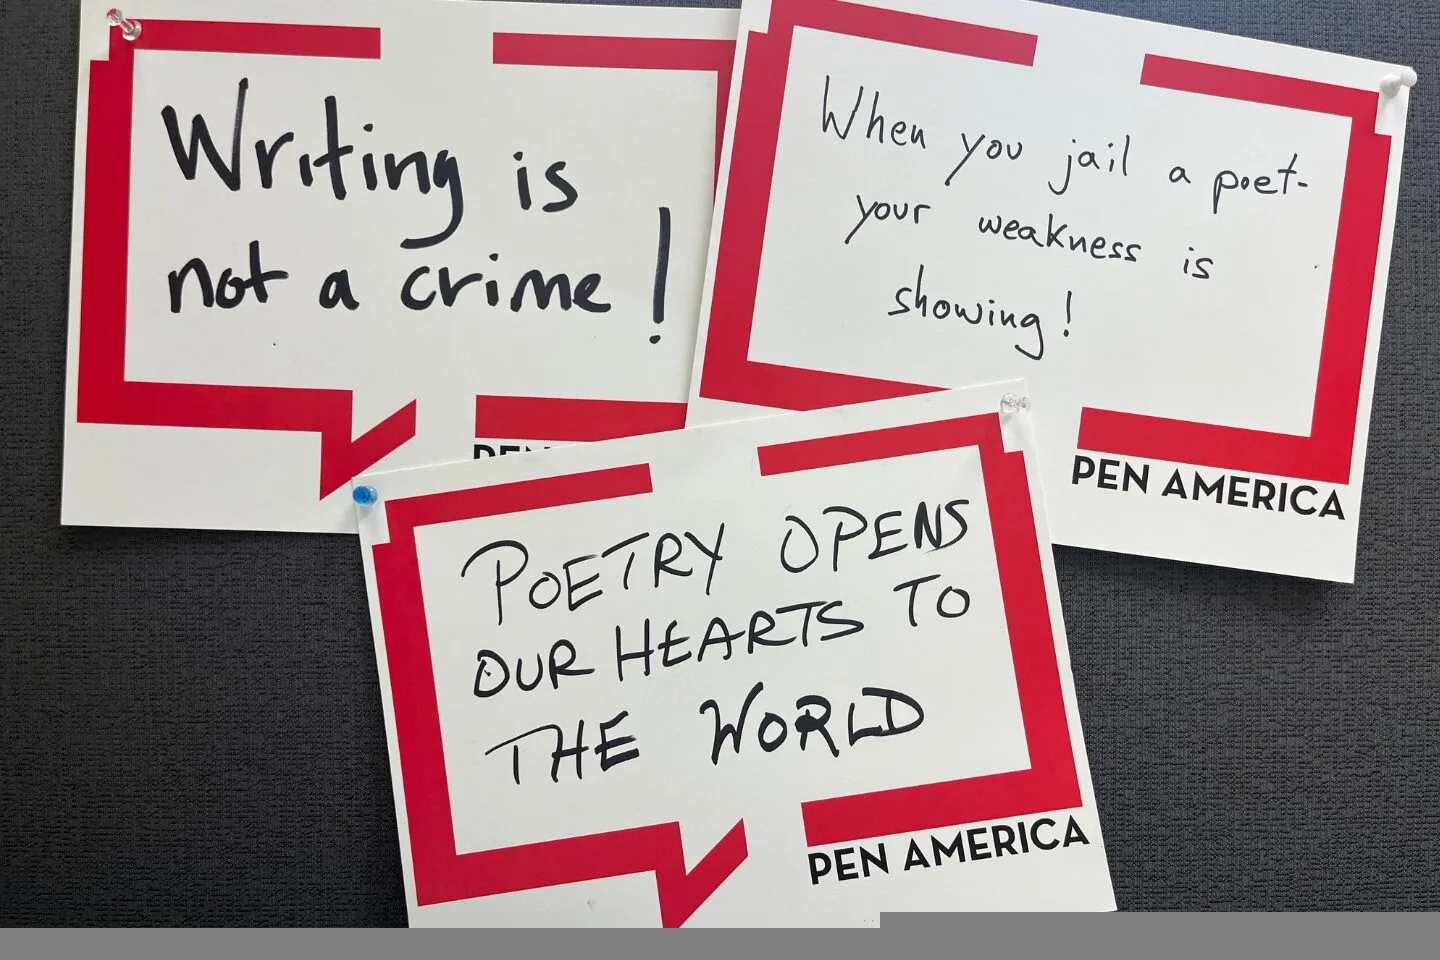 Writing is
not a crime!
When you jail a poet-
your weakness is
showing!
PEN AMERICA
POETRY OPENS
OUR HEARTS TO
THE WORLD
PEN AMERICA